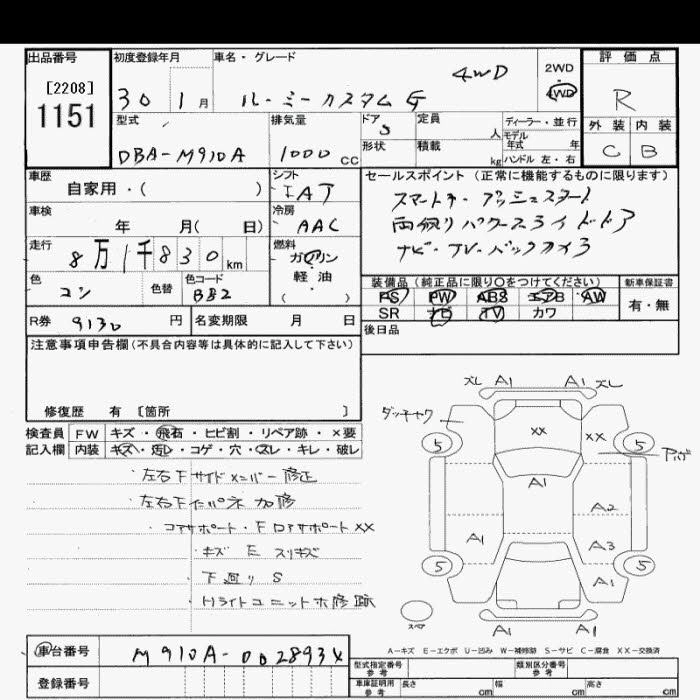 出品番号 初度登録年月 車名・グレード 評価点
[2208] 1151
30 1月 ルーミーカスタムG 4WD 2WD・4WD R
型式 排気量 ドア 定員 人 ディーラー・並行 外装 内装
DBA-M910A 1000cc 5 形状 積載 kg モデル年式 年 ハンドル 左・右 C B
車歴 シフト セールスポイント (正常に機能するものに限ります)
自家用・( ) IAT スマートキー プッシュスタート
車検 冷房 両側パワースライドドア
年 月( 日) AAC ナビ・TV・バックカメラ
走行 燃料
8万1千830km ガソリン
軽油
( )
色 色替 色コード 装備品 (純正品に限り○をつけてください) 新車保証書
コン B82 PS PW ABS エアB AW 有・無
SR ナビ TV カワ
R券 9130円 名変期限 月 日 後日品
注意事項申告欄(不具合内容等は具体的に記入して下さい)
修復歴 有 [箇所 ]
検査員 FW キズ・飛石・ヒビ割・リペア跡・×要
記入欄 内装 キズ・汚レ・コゲ・穴・スレ・キレ・破レ
左右Fサイドメンバー修正
左右Fインパネ加修
コアサポート・FロアサポートXX
・キズ E スリキズ
下廻り S
・Hライトユニットホ修跡
ズレ A1 A1 ズレ
ダッチャク XX XX
5 5
A1
A2
A1 A3
5 A1 5
スペア A1 A1
A-キズ E-エクボ U-凹み W-補修跡 S-サビ C-腐食 XX-交換済
車台番号 M910A-0028934
登録番号
型式指定番号 参考 類別区分番号 参考
車庫証明用 参考 長さ cm 幅 cm 高さ cm